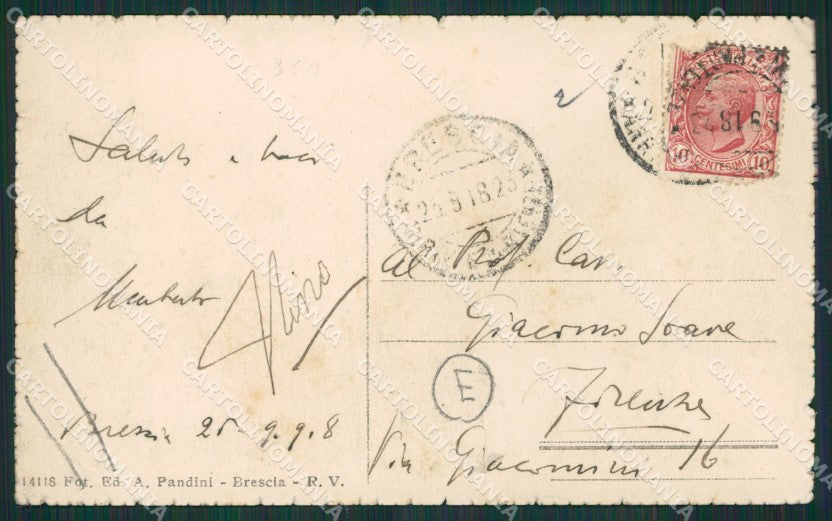 Saluti e baci
da
Umberto
Brescia 25-9-918
Al Prof. Cav.
Giacomo Soave
Firenze
Via Giacomini 16
E
BRESCIA
25.9.18.23
10 CENTESIMI 10
14118 Fot. Ed. A. Pandini - Brescia - R. V.
CARTOLINOMANIA